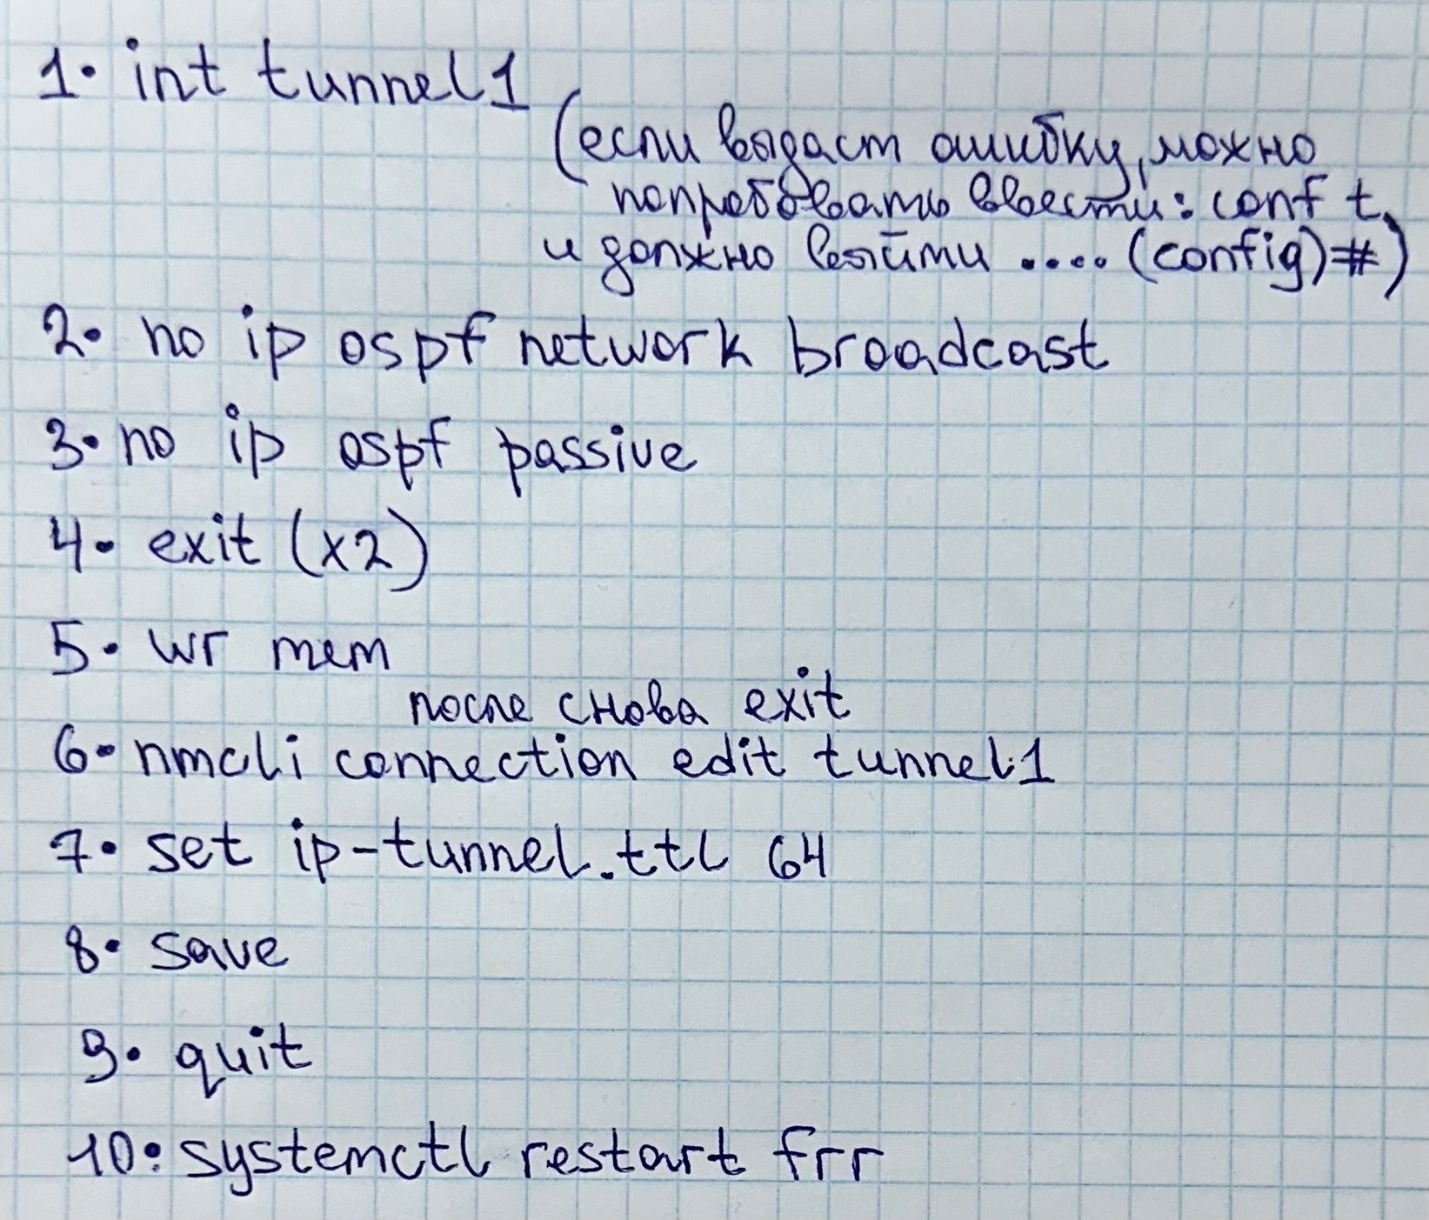 1. int tunnel1
(если выдаст ошибку, можно
попробовать ввести: conf t,
и должно выйти .... (config)#)
2. no ip ospf network broadcast
3. no ip ospf passive
4. exit (x2)
5. wr mem
после снова exit
6. nmcli connection edit tunnel1
7. set ip-tunnel.ttl 64
8. save
9. quit
10. systemctl restart frr